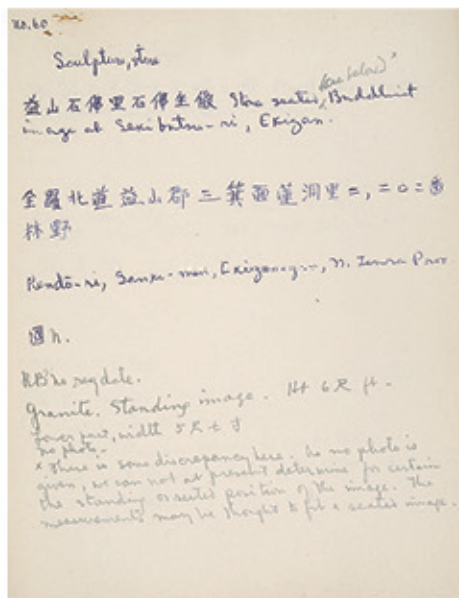 no.60
Sculpture, stone
(see below) x
益山石佛里石佛坐像 Stone seated, Buddhist
image at Sekibutsu-ri, Ekizan.
全羅北道益山郡三箕面蓮洞里 二, 二〇二
林野
Rendō-ri, Sanki-men, Ekizan-gun, N. Zenra Prov
國 h.
NB no reg date.
Granite. Standing image. Ht 6尺 ft.
Lower part, width 5尺七寸
no photo.
x There is some discrepancy here. As no photo is
given, we can not at present determine for certain
the standing or seated position of the image. The
measurements may be thought to fit a seated image.